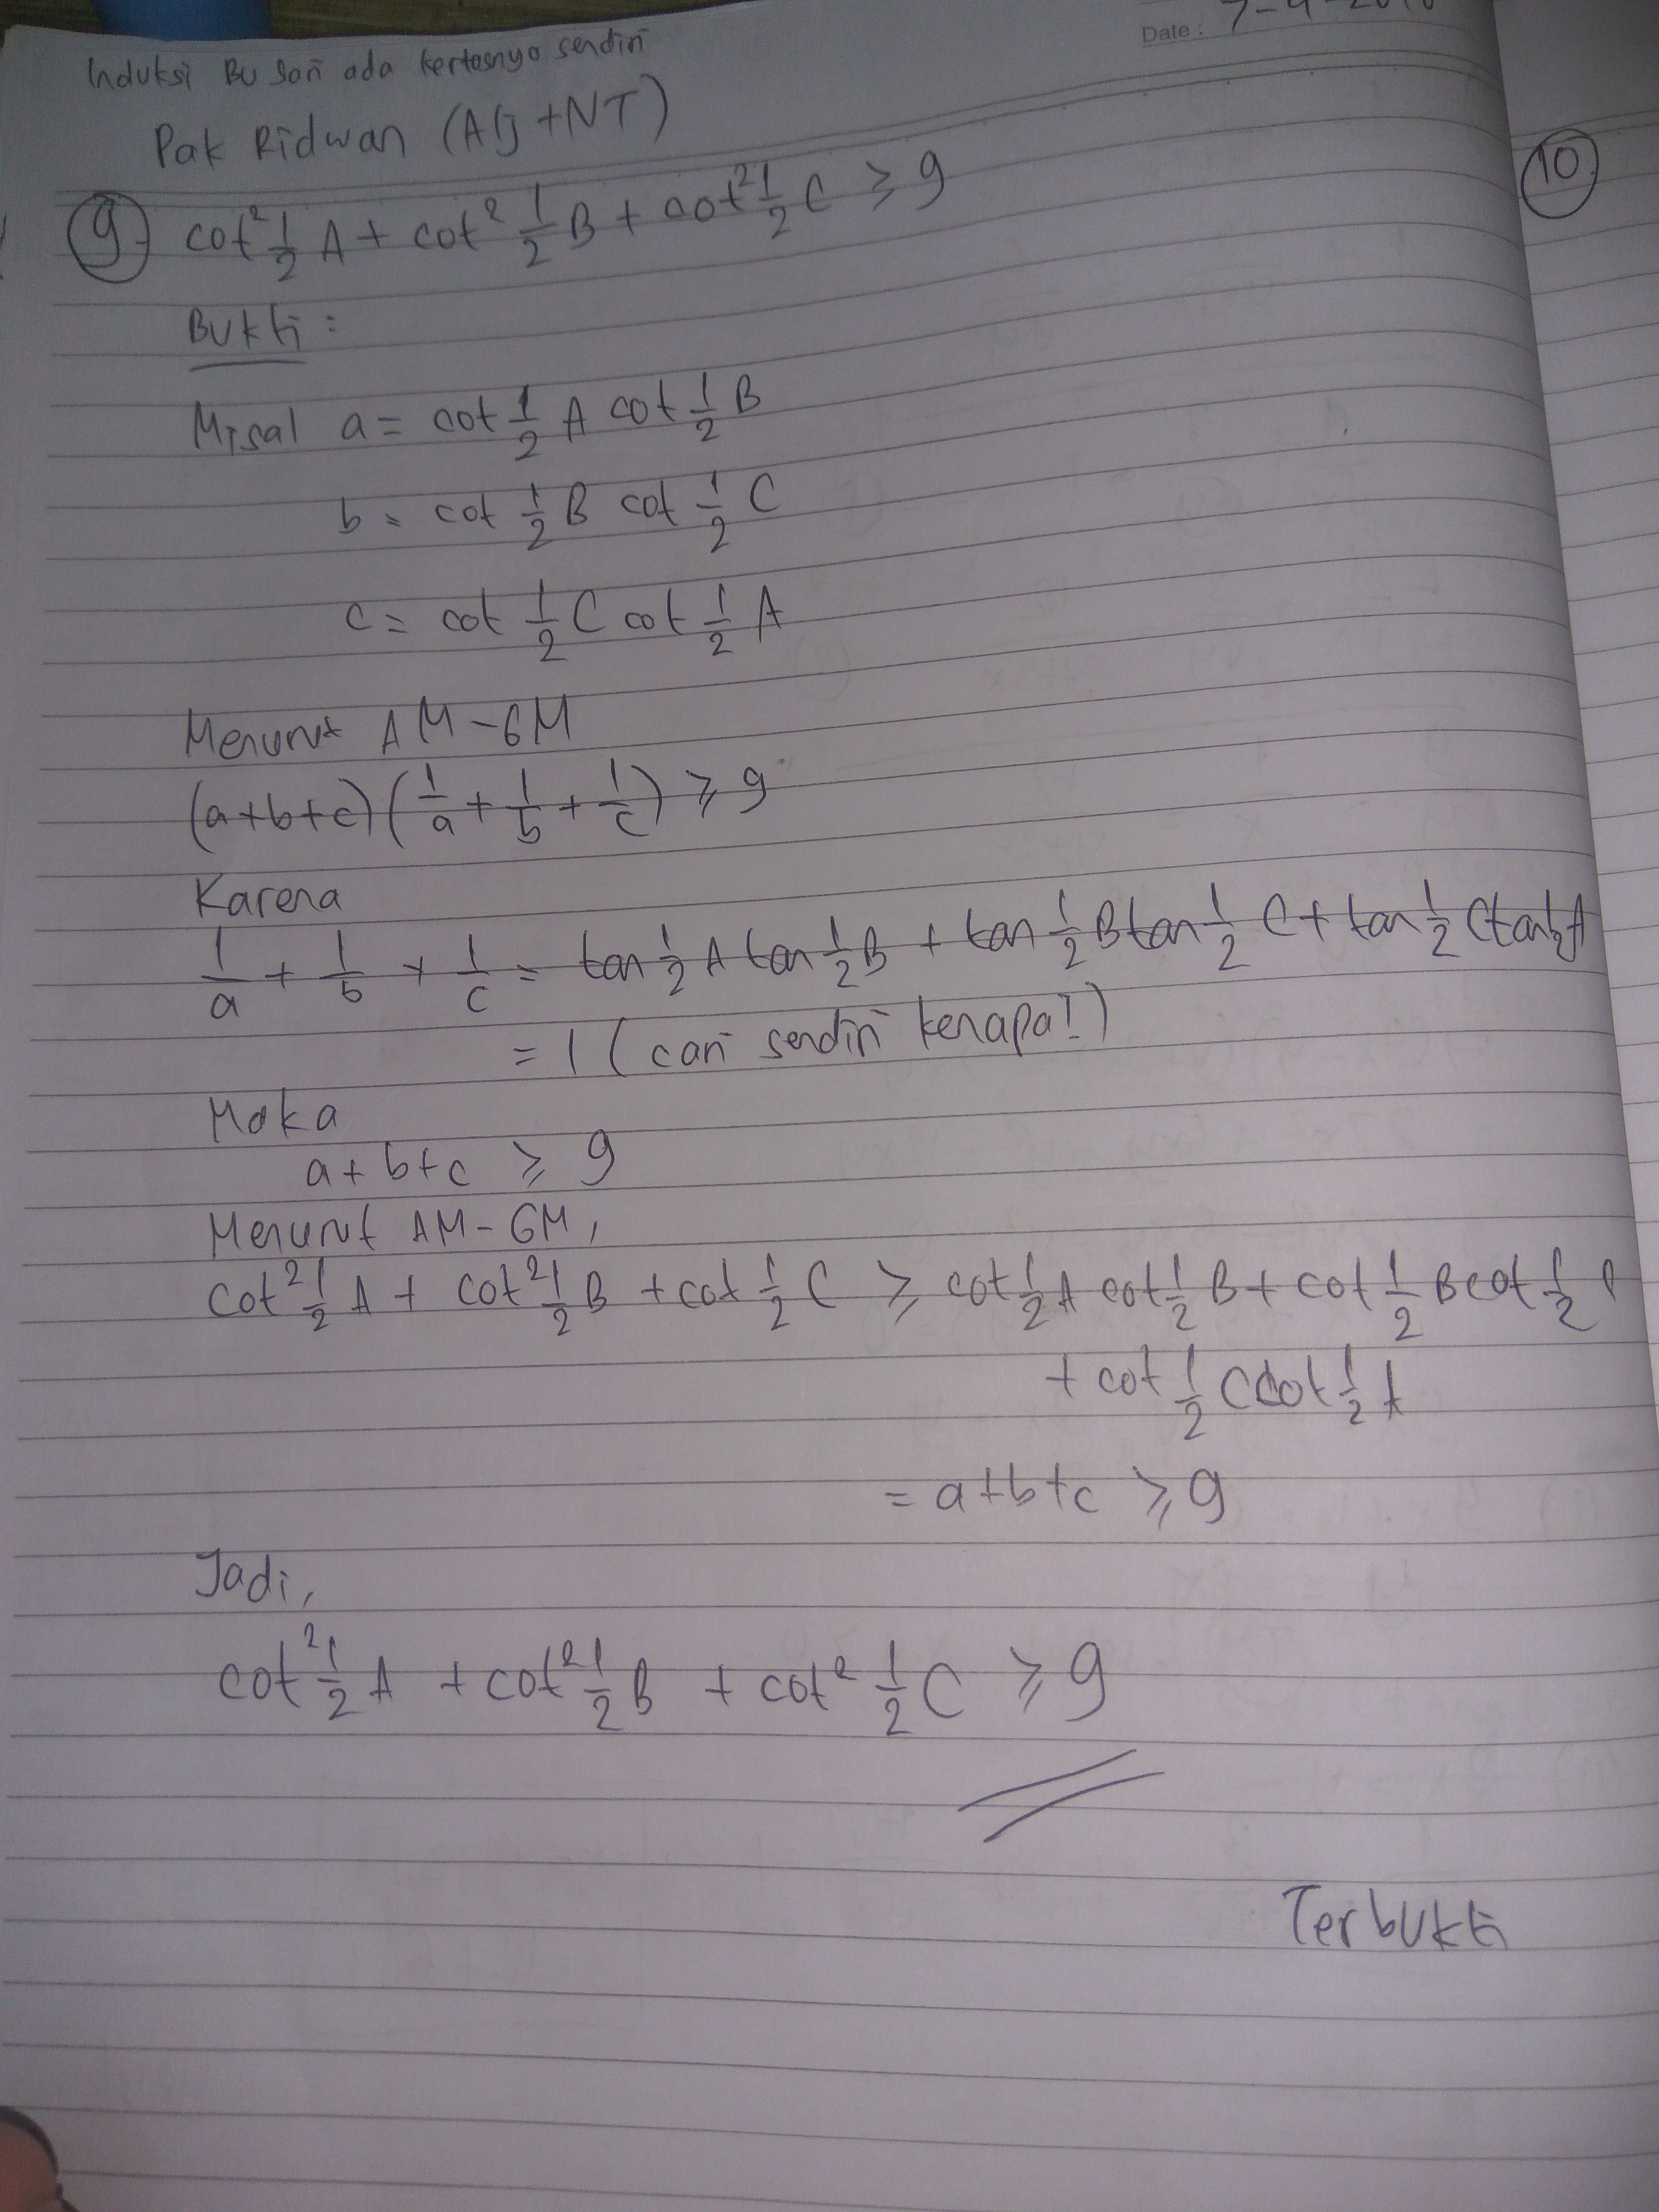 Date :
Induksi Bu Sari ada kertasnya sendiri
Pak Ridwan (Alj + NT)
9. cot² 1/2 A + cot² 1/2 B + cot² 1/2 C ≥ 9
10
Bukti :
Misal a = cot 1/2 A cot 1/2 B
b = cot 1/2 B cot 1/2 C
c = cot 1/2 C cot 1/2 A
Menurut AM-GM
(a+b+c) (1/a + 1/b + 1/c) ≥ 9
Karena
1/a + 1/b + 1/c = tan 1/2 A tan 1/2 B + tan 1/2 B tan 1/2 C + tan 1/2 C tan 1/2 A
= 1 (cari sendiri kenapa!)
Maka
a + b + c ≥ 9
Menurut AM-GM,
cot² 1/2 A + cot² 1/2 B + cot 1/2 C ≥ cot 1/2 A cot 1/2 B + cot 1/2 B cot 1/2 C
+ cot 1/2 C cot 1/2 A
= a+b+c ≥ 9
Jadi,
cot² 1/2 A + cot² 1/2 B + cot² 1/2 C ≥ 9
Terbukti